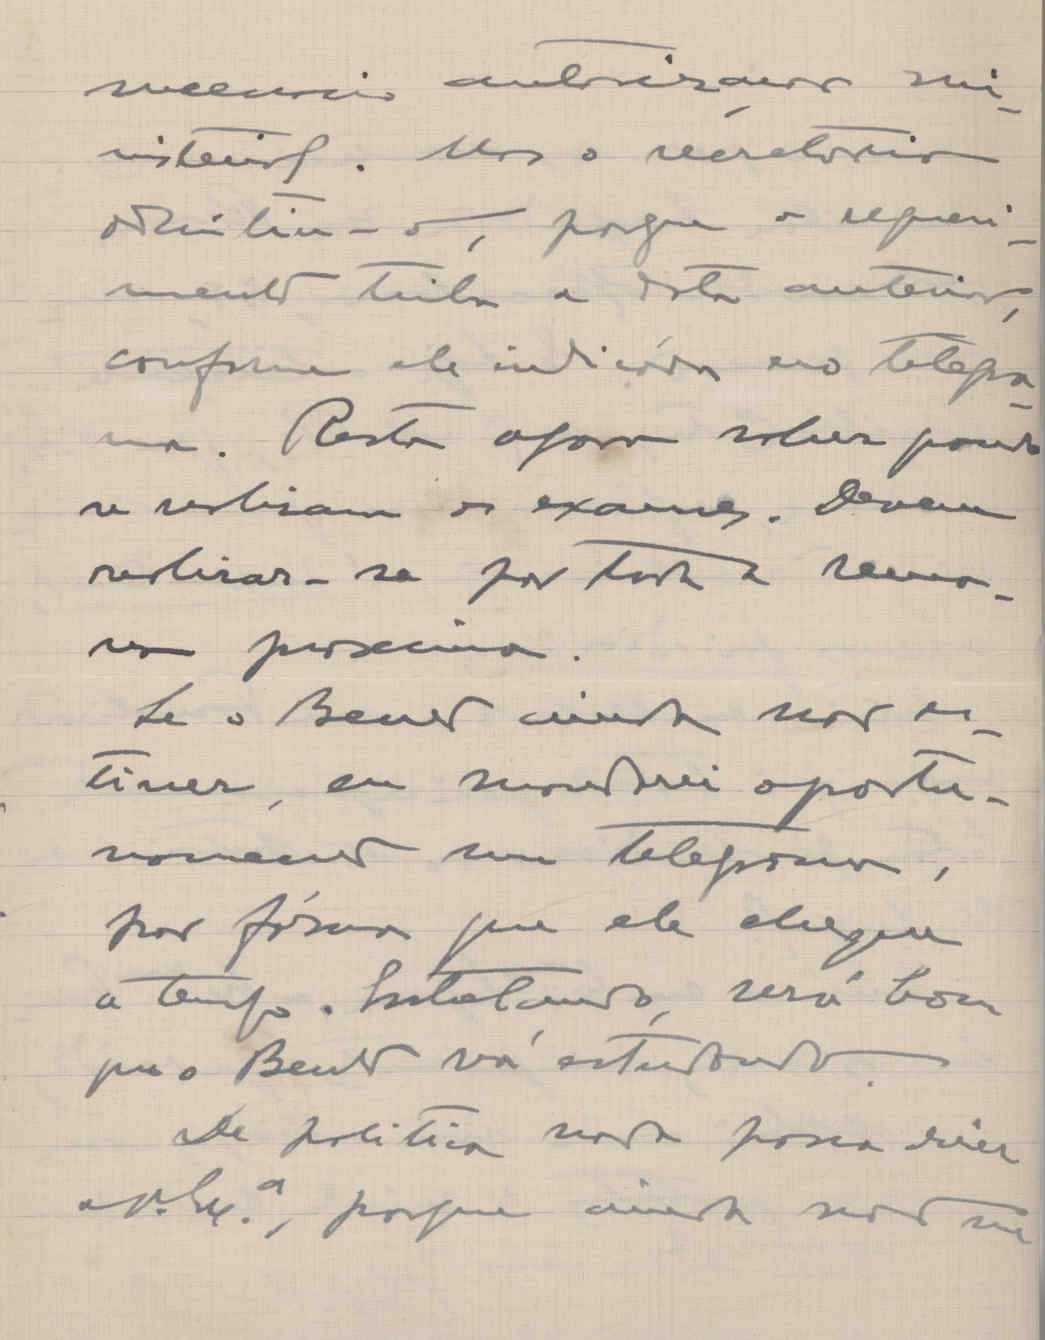 necessario autorização mi-
nisterial. Mas o secretario
admitiu-o, porque o requeri-
mento tinha a data anterior,
conforme ele indicára no telegra-
ma. Resta agora saber quando
se realisam os exames. Devem
realisar-se por toda a sema-
na proxima.
Se o Bento ainda não es-
tiver, eu mandarei oportu-
namente um telegrama,
por fórma que ele chegue
a tempo. Entretanto, será bom
que o Bento vá estudando.
De politica nada posso dizer
a V. Ex.ª, porque ainda não me